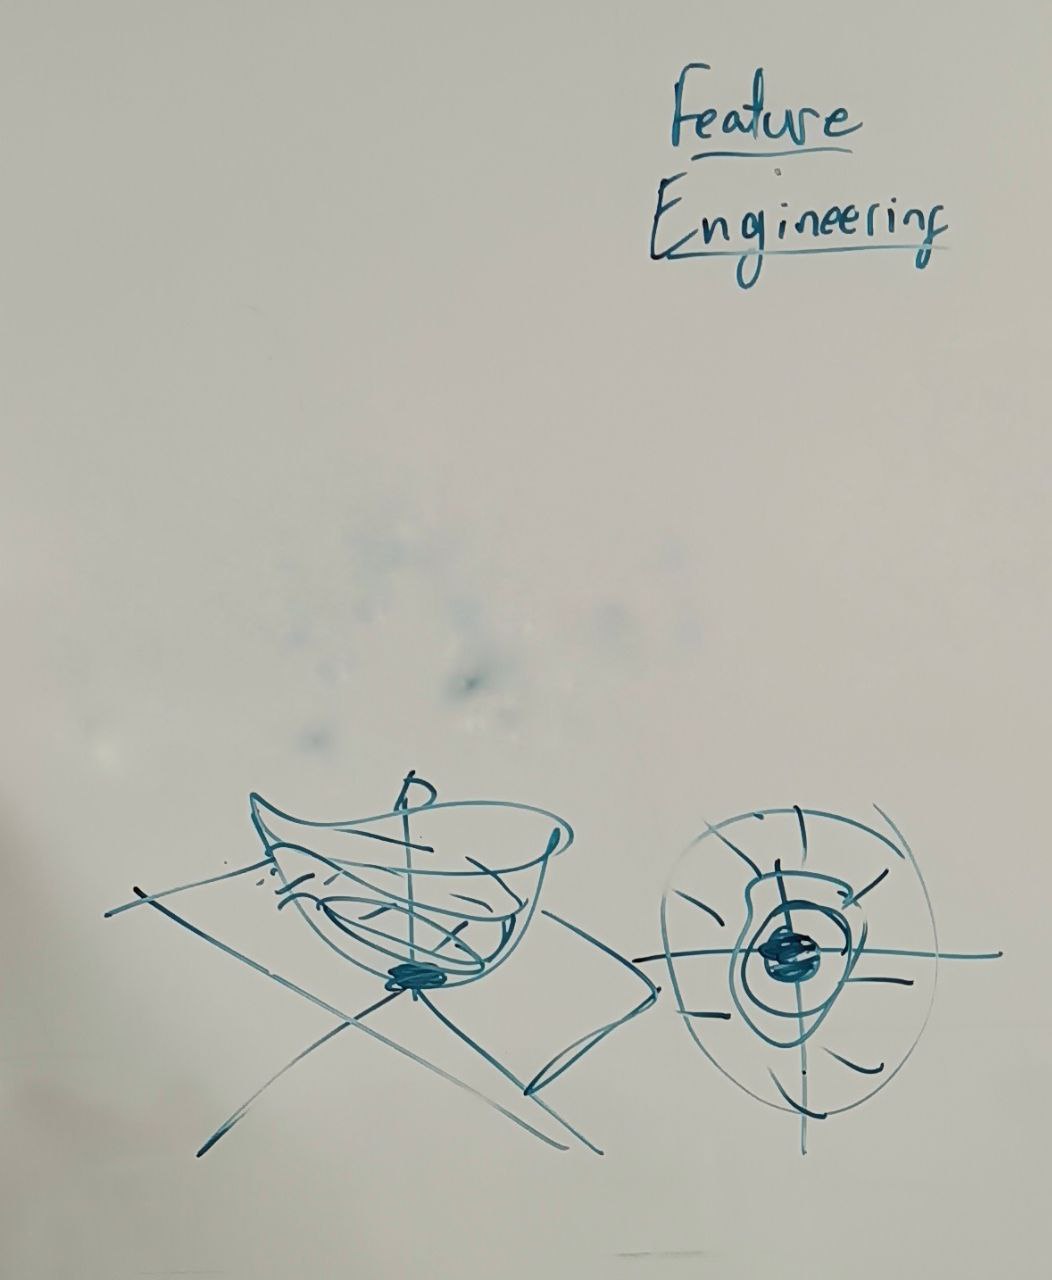 Feature
Engineering